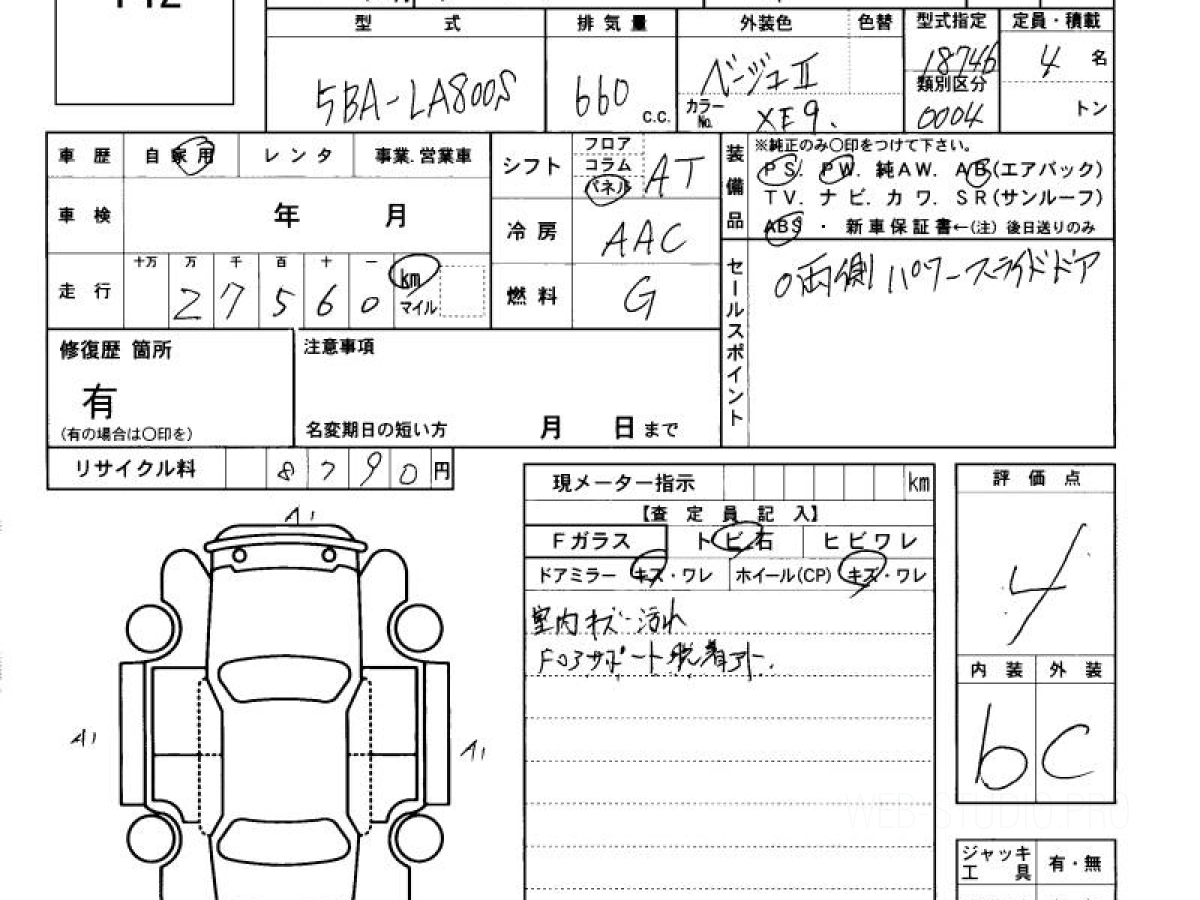 型 式
排 気 量
外装色
色替
型式指定
定員・積載
5BA-LA800S
660
c.c.
ベージュII
カラーNo.
XE9.
18746
類別区分
0004
4
名
トン
車 歴
自 家 用
レ ン タ
事業.営業車
車 検
年 月
走 行
十万 万 千 百 十 一
2 7 5 6 0
km
マイル
シフト
フロア
コラム
パネル
AT
冷 房
AAC
燃 料
G
装備品
※純正のみ〇印をつけて下さい。
PS. PW. 純AW. AB(エアバック)
TV. ナビ. カワ. SR(サンルーフ)
ABS ・ 新車保証書←(注) 後日送りのみ
セールスポイント
○両側パワースライドドア
修復歴 箇所
有
(有の場合は〇印を)
注意事項
名変期日の短い方 月 日まで
リサイクル料
8 7 9 0 円
現メーター指示
km
【査 定 員 記 入】
Fガラス
トビ石
ヒビワレ
ドアミラー キズ・ワレ
ホイール(CP) キズ・ワレ
室内キズ・汚れ
サポート脱着アト.
評 価 点
4
内 装
外 装
b
C
A1
A1
A1
WEB-STUDIO.PRO
ジャッキ
工 具
有・無